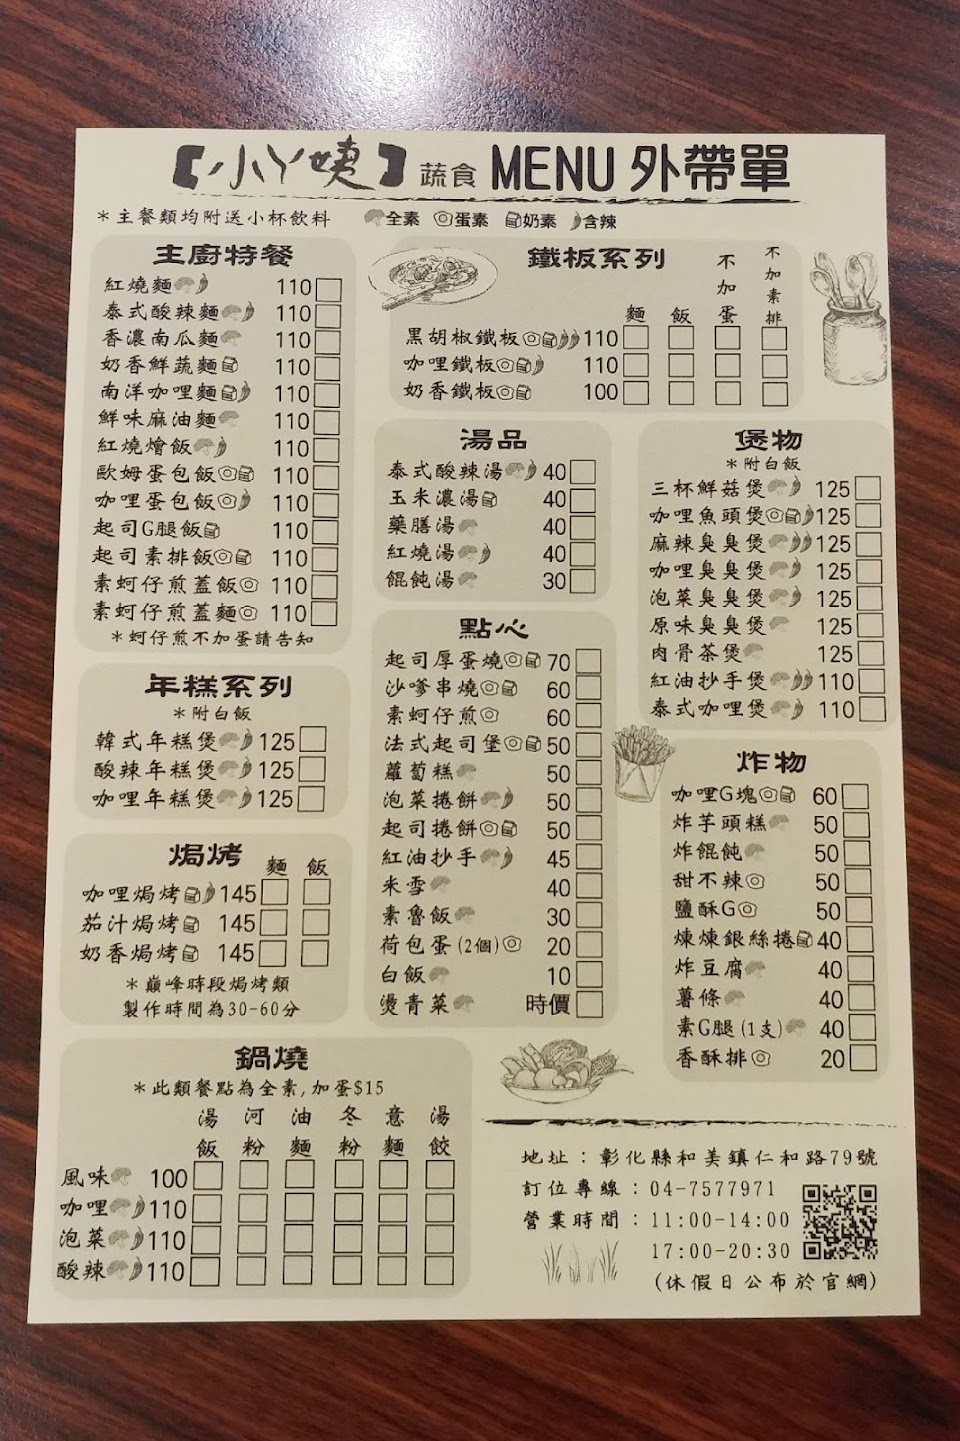 【小丫姨】蔬食 MENU 外帶單
＊主餐類均附送小杯飲料 全素 蛋素 奶素 含辣
主廚特餐
紅燒麵 110
泰式酸辣麵 110
香濃南瓜麵 110
奶香鮮蔬麵 110
南洋咖哩麵 110
鮮味麻油麵 110
紅燒燴飯 110
歐姆蛋包飯 110
咖哩蛋包飯 110
起司G腿飯 110
起司素排飯 110
素蚵仔煎蓋飯 110
素蚵仔煎蓋麵 110
＊蚵仔煎不加蛋請告知
年糕系列
＊附白飯
韓式年糕煲 125
酸辣年糕煲 125
咖哩年糕煲 125
焗烤 麵 飯
咖哩焗烤 145
茄汁焗烤 145
奶香焗烤 145
＊巔峰時段焗烤類
製作時間為30-60分
鍋燒
＊此類餐點為全素,加蛋$15
湯飯 河粉 油麵 冬粉 意麵 湯餃
風味 100
咖哩 110
泡菜 110
酸辣 110
鐵板系列
麵 飯 不加蛋 不加素排
黑胡椒鐵板 110
咖哩鐵板 110
奶香鐵板 100
湯品
泰式酸辣湯 40
玉米濃湯 40
藥膳湯 40
紅燒湯 40
餛飩湯 30
點心
起司厚蛋燒 70
沙嗲串燒 60
素蚵仔煎 60
法式起司堡 50
蘿蔔糕 50
泡菜捲餅 50
起司捲餅 50
紅油抄手 45
米雪 40
素魯飯 30
荷包蛋(2個) 20
白飯 10
燙青菜 時價
煲物
＊附白飯
三杯鮮菇煲 125
咖哩魚頭煲 125
麻辣臭臭煲 125
咖哩臭臭煲 125
泡菜臭臭煲 125
原味臭臭煲 125
肉骨茶煲 125
紅油抄手煲 110
泰式咖哩煲 110
炸物
咖哩G塊 60
炸芋頭糕 50
炸餛飩 50
甜不辣 50
鹽酥G 50
煉煉銀絲捲 40
炸豆腐 40
薯條 40
素G腿(1支) 40
香酥排 20
地址：彰化縣和美鎮仁和路79號
訂位專線：04-7577971
營業時間：11:00-14:00
17:00-20:30
(休假日公布於官網)